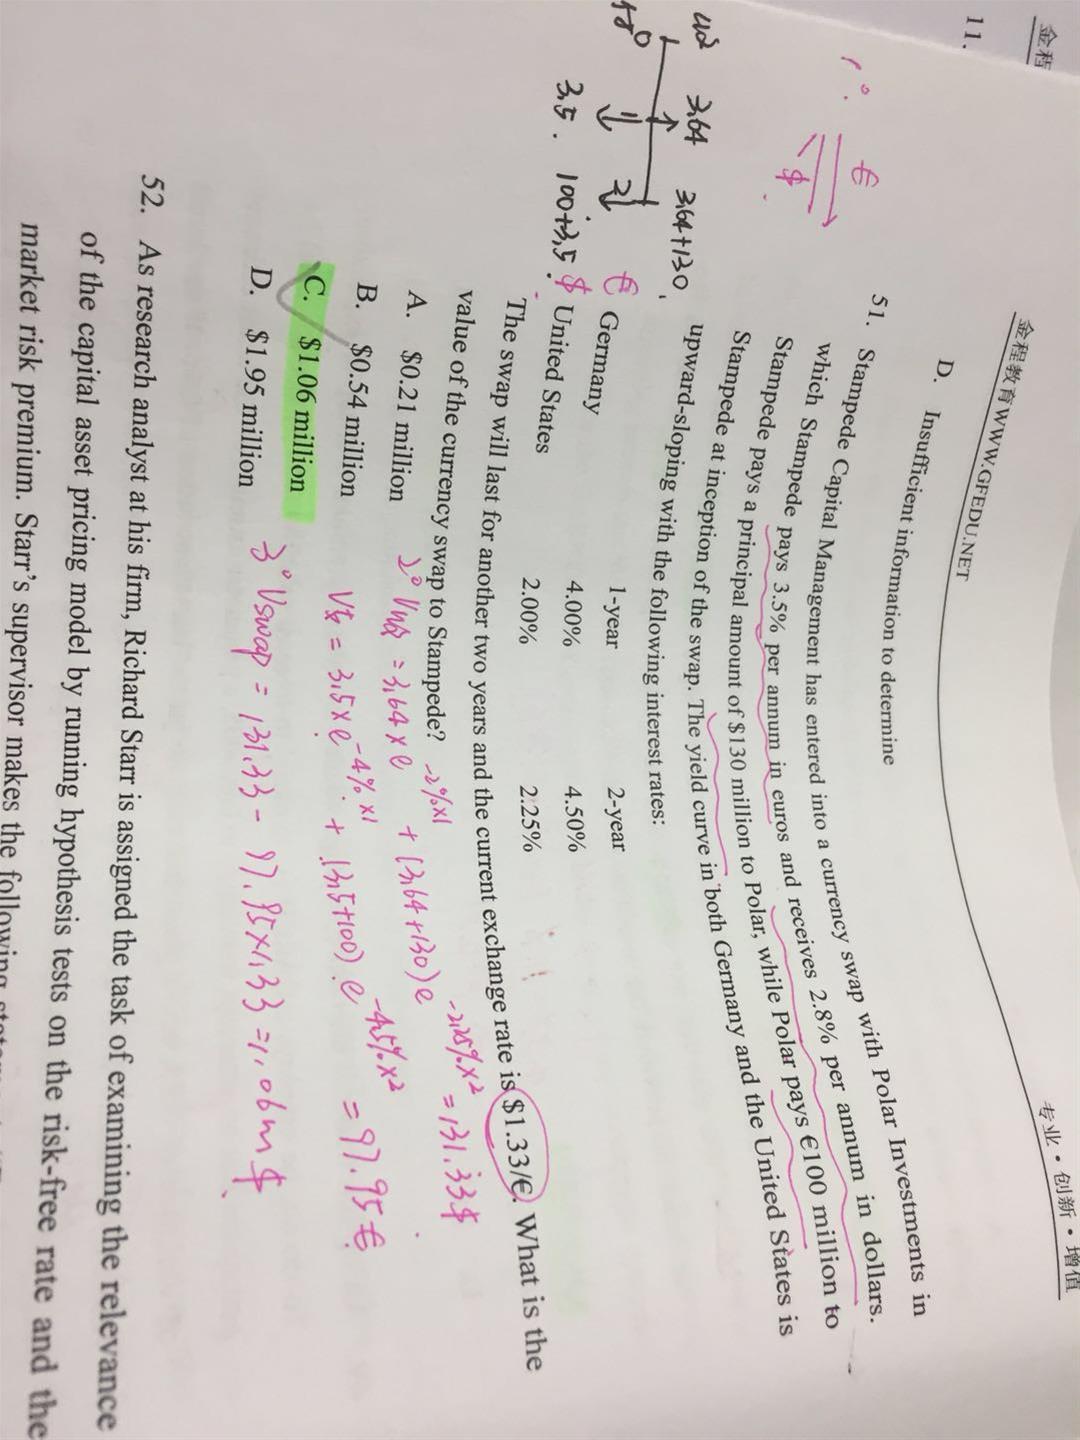 金程
11.
金程教育WWW.GFEDU.NET
专业·创新·增值
D. Insufficient information to determine
51. Stampede Capital Management has entered into a currency swap with Polar Investments in
which Stampede pays 3.5% per annum in euros and receives 2.8% per annum in dollars.
Stampede pays a principal amount of $130 million to Polar, while Polar pays €100 million to
Stampede at inception of the swap. The yield curve in both Germany and the United States is
upward-sloping with the following interest rates:
1-year 2-year
€ Germany 4.00% 4.50%
$ United States 2.00% 2.25%
The swap will last for another two years and the current exchange rate is $1.33/€. What is the
value of the currency swap to Stampede?
A. $0.21 million
B. $0.54 million
C. $1.06 million
D. $1.95 million
1°. €
$
3.64 3.64+130
1 2
3.5. 100+3.5
= 3.64×e -2%×1 + (3.64+130)e -2.25%×2 = 131.33$
= 3.5×e -4%×1 + (3.5+100)e -4.5%×2 = 97.95€
3° Vswap = 131.33 - 97.95×1.33 = 1.06m$
52. As research analyst at his firm, Richard Starr is assigned the task of examining the relevance
of the capital asset pricing model by running hypothesis tests on the risk-free rate and the
market risk premium. Starr's supervisor makes the following